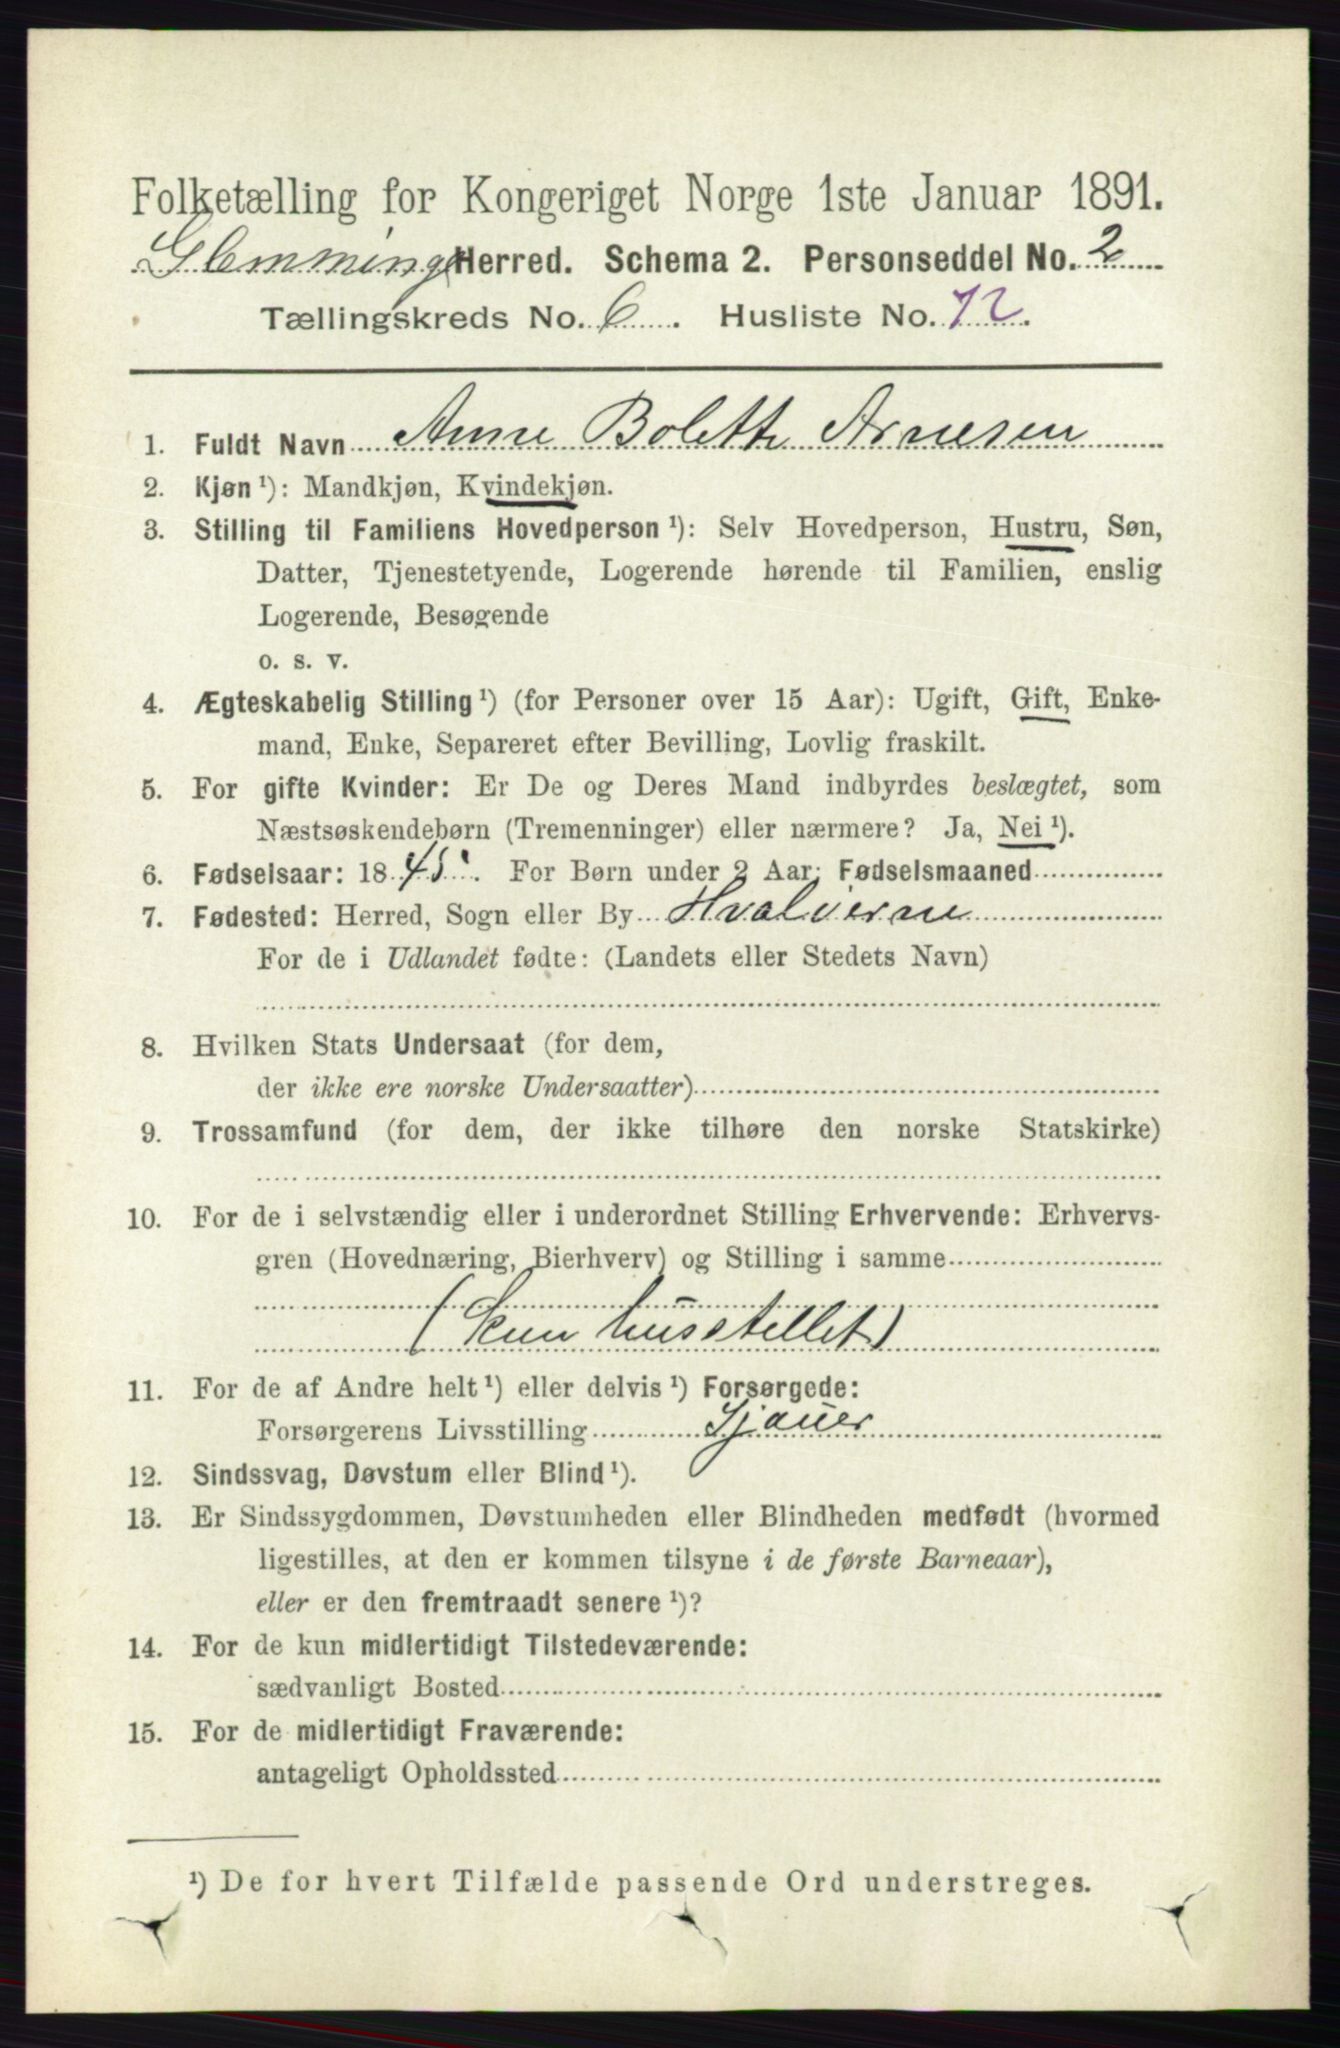 Folketælling for Kongeriget Norge 1ste Januar 1891.
Glemminge Herred. Schema 2. Personseddel No. 2
Tællingskreds No. 6. Husliste No. 72.
1. Fuldt Navn Anne Bolette Arnesen
2. Kjøn ¹): Mandkjøn, Kvindekjøn.
3. Stilling til Familiens Hovedperson ¹): Selv Hovedperson, Hustru, Søn,
Datter, Tjenestetyende, Logerende hørende til Familien, enslig
Logerende, Besøgende
o. s. v.
4. Ægteskabelig Stilling ¹) (for Personer over 15 Aar): Ugift, Gift, Enke-
mand, Enke, Separeret efter Bevilling, Lovlig fraskilt.
5. For gifte Kvinder: Er De og Deres Mand indbyrdes beslægtet, som
Næstsøskendebørn (Tremenninger) eller nærmere? Ja, Nei ¹).
6. Fødselsaar: 1845. For Børn under 2 Aar: Fødselsmaaned
7. Fødested: Herred, Sogn eller By Hvaløerne
For de i Udlandet fødte: (Landets eller Stedets Navn)
8. Hvilken Stats Undersaat (for dem,
der ikke ere norske Undersaatter)
9. Trossamfund (for dem, der ikke tilhøre den norske Statskirke)
10. For de i selvstændig eller i underordnet Stilling Erhvervende: Erhvervs-
gren (Hovednæring, Bierhverv) og Stilling i samme
(Kun husstellet)
11. For de af Andre helt ¹) eller delvis ¹) Forsørgede:
Forsørgerens Livsstilling Sjauer
12. Sindssvag, Døvstum eller Blind ¹).
13. Er Sindssygdommen, Døvstumheden eller Blindheden medfødt (hvormed
ligestilles, at den er kommen tilsyne i de første Barneaar),
eller er den fremtraadt senere ¹)?
14. For de kun midlertidigt Tilstedeværende:
sædvanligt Bosted
15. For de midlertidigt Fraværende:
antageligt Opholdssted
¹) De for hvert Tilfælde passende Ord understreges.